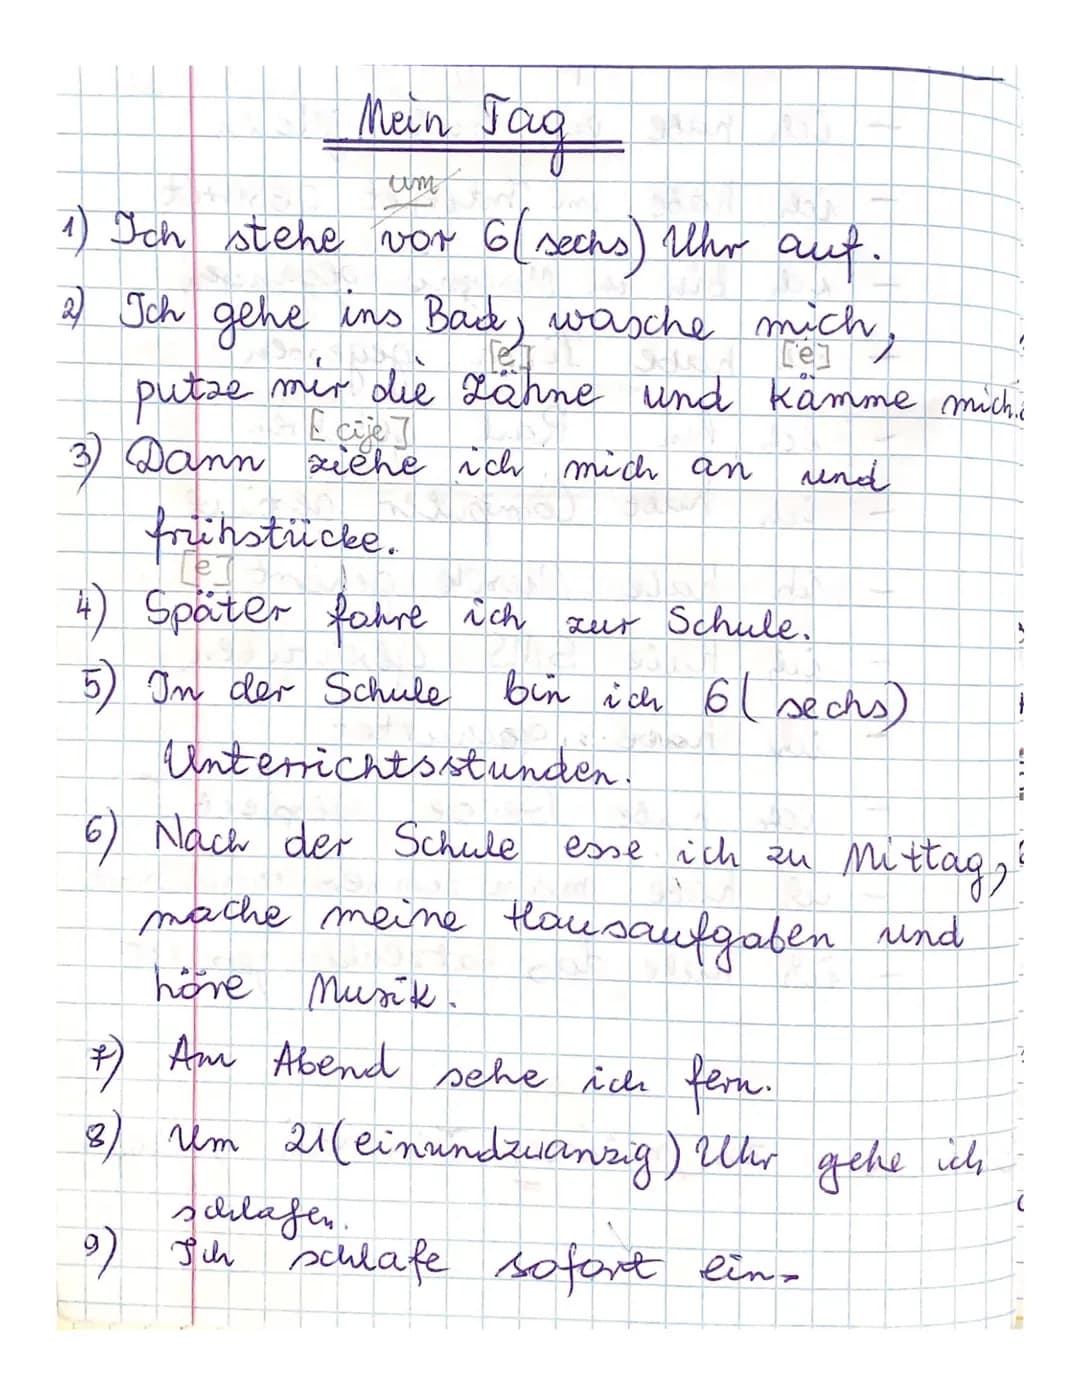 Mein Tag
um
1) Ich stehe vor 6 (sechs) Uhr auf.
2) Ich gehe ins Bad, wasche mich,
[e] [e]
putze mir die Zähne und kämme mich.
[cije]
3) Dann ziehe ich mich an und
frühstücke.
[e]
4) Später fahre ich zur Schule.
5) In der Schule bin ich 6 (sechs)
Unterrichtsstunden.
6) Nach der Schule esse ich zu Mittag,
mache meine Hausaufgaben und
höre Musik.
7) Am Abend sehe ich fern.
8) Um 21 (einundzwanzig) Uhr gehe ich
schlafen.
9) Ich schlafe sofort ein.